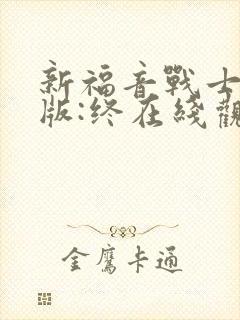 新福音戰士
版:终在綫觀
金鷹卡通